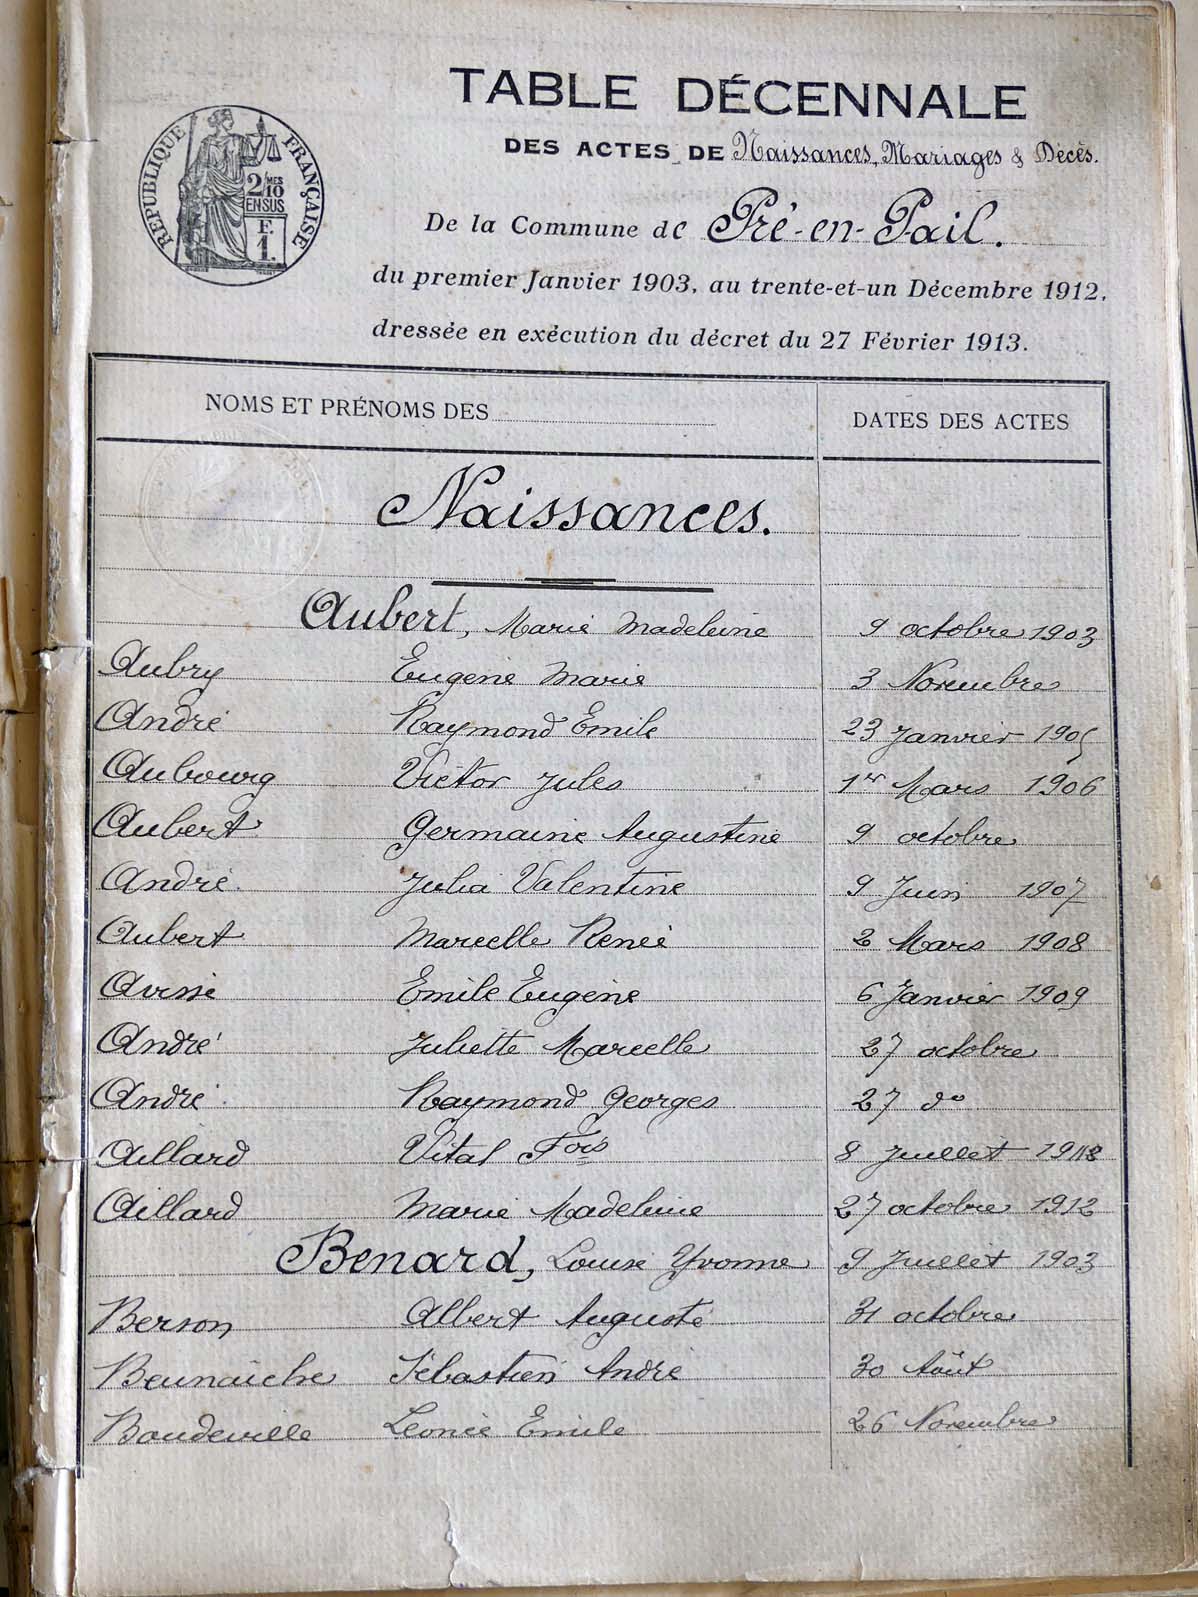 TABLE DÉCENNALE
DES ACTES DE Naissances, Mariages & Décès.
RÉPUBLIQUE FRANÇAISE
2/MES
10
EN SUS
F.
1.
De la Commune de Pré-en-Pail.
du premier Janvier 1903, au trente-et-un Décembre 1912,
dressée en exécution du décret du 27 Février 1913.
NOMS ET PRÉNOMS DES DATES DES ACTES
Naissances.
Aubert, Marie Madeleine 9 octobre 1903
Aubry Eugène Marie 3 Novembre
André Raymond Emile 23 Janvier 1905
Aubourg Victor Jules 1er Mars 1906
Aubert Germaine Augustine 9 octobre
André Julia Valentine 9 Juin 1907
Aubert Marcelle Renée 2 Mars 1908
Avisse Emile Eugène 6 Janvier 1909
André Juliette Marcelle 27 octobre
André Raymond Georges 27 do
Aillard Vital Fois 8 Juillet
Aillard Marie Madeleine 27 octobre 1912
Benard, Louise Yvonne 9 Juillet 1903
Berson Albert Auguste 31 octobre
Beunaiche Sébastien André 30 Août
Baudeville Emile 26 Novembre